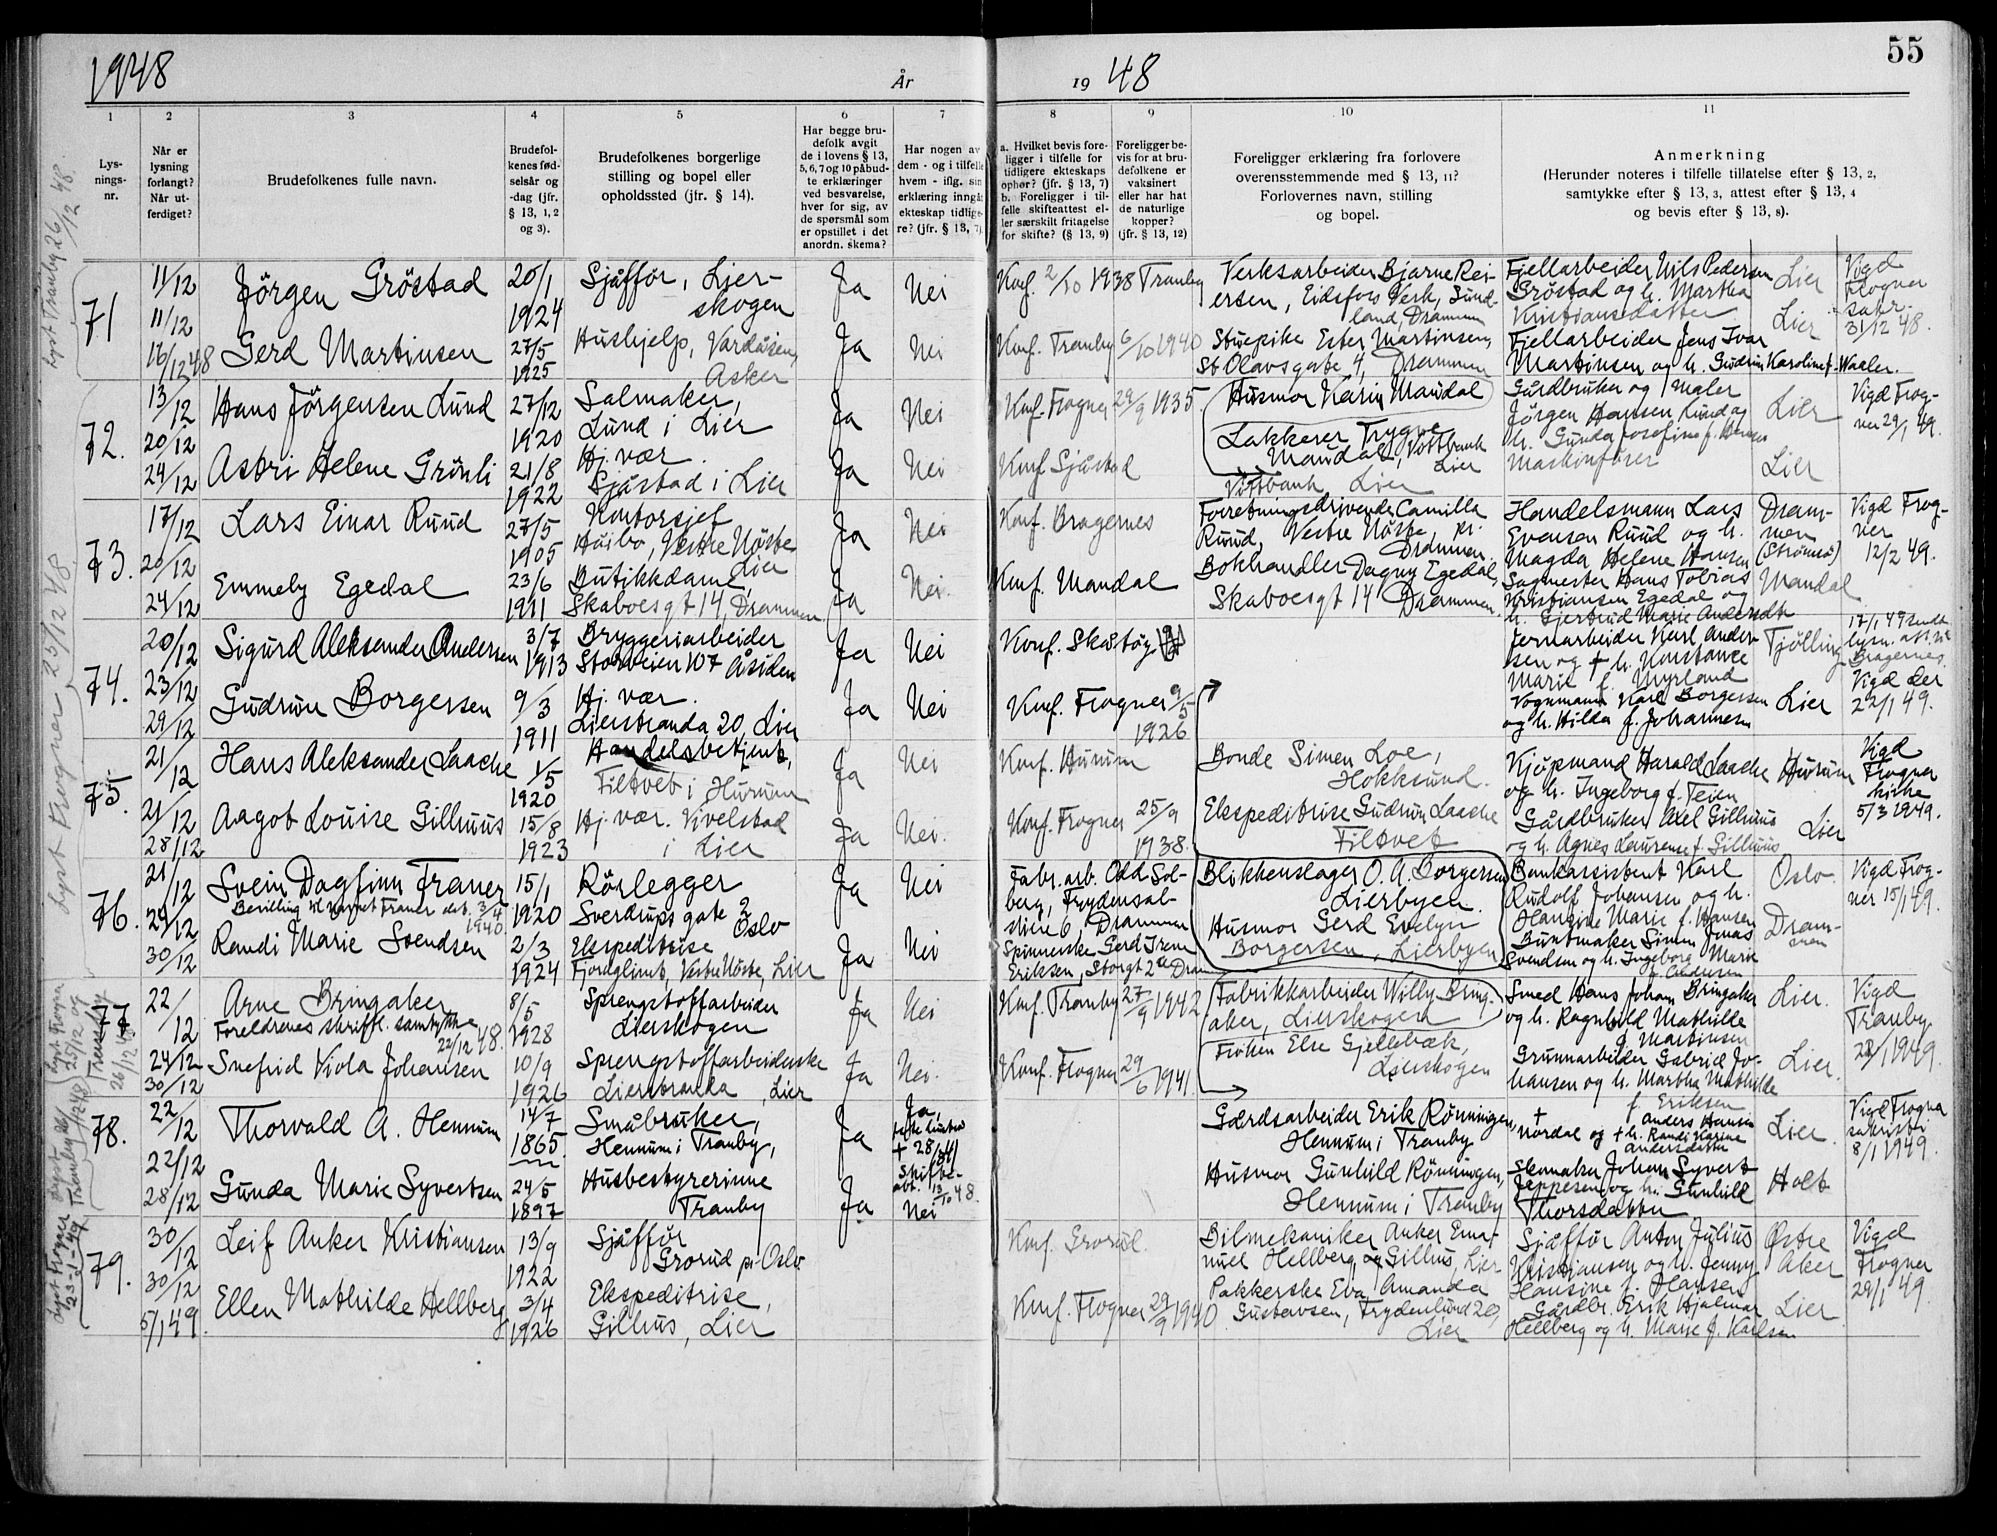 1948 År 19 48 55
1 2 3 4 5 6 7 8 9 10 11
Lys-
nings-
nr.
Når er
lysning
forlangt?
Når ut-
ferdiget?
Brudefolkenes fulle navn.
Brudefol-
kenes fød-
selsår og
-dag (jfr.
§ 13, 1, 2
og 3).
Brudefolkenes borgerlige
stilling og bopel eller
opholdssted (jfr. § 14).
Har begge bru-
defolk avgit
de i lovens § 13,
5, 6, 7 og 10 påbud-
te erklæringer
ved besvarelse,
hver for sig, av
de spørsmål som
er opstillet i det
anordn. skema?
Har nogen av
dem - og i tilfelle
hvem - iflg. sin
erklæring inngåt
ekteskap tidlige-
re? (jfr. § 13, 7).
a. Hvilket bevis fore-
ligger i tilfelle for
tidligere ekteskaps
ophør? (jfr. § 13, 7)
b. Foreligger i til-
felle skifteattest el-
ler særskilt fritagelse
for skifte? (§ 13, 9)
Foreligger be-
vis for at bru-
defolkene er
vaksinert
eller har hat
de naturlige
kopper?
(jfr. § 13, 12)
Foreligger erklæring fra forlovere
overensstemmende med § 13, 11?
Forlovernes navn, stilling
og bopel.
Anmerkning
(Herunder noteres i tilfelle tillatelse efter § 13, 2,
samtykke efter § 13, 3, attest efter § 13, 4
og bevis efter § 13, 8).
Lyst Tranby 26/12 48.
71
11/12
11/12
16/12 48
Jörgen Gröstad
Gerd Martinsen
20/1
1924
27/5
1925
Sjåffør, Lier-
skogen
Hushjelp, Vardåsen,
Asker
Ja
Ja
Nei
Nei
Konf. 2/10 1938 Tranby
Konf. Tranby 6/10 1940
Verksarbeider Bjarne Rei-
ersen, Eidsfos Verk, Sund-
land, Drammen
Stuepike Ester Martinsen,
St Olavsgate 4, Drammen
Fjellarbeider Nils Pedersen
Gröstad og h. Martha
Kristiansdatter
Fjellarbeider Jens Ivar
Martinsen og h. Gudrun Karoline f. Waaler.
Lier
Lier
Vigd
Frogner
sakr.
31/12 48.
72.
13/12
20/12
24/12
Hans Jörgensen Lund
Astri Helene Grönli
27/12
1920
21/8
1922
Salmaker,
Lund i Lier
Hj. vær.
Sjåstad i Lier
Ja
Ja
Nei
Nei
Konf. Frogner 29/9 1935.
Konf Sjåstad
Husmor Karin Mandal
Lakkerer Trygve
Mandal, Vittbank
Lier
Vittbank Lier
Gårdbruker og maler
Jörgen Hansen Lund og
h. Gunda Josefine f. Hansen
Maskinfører
Lier
Lier
Vigd Frog-
ner 29/1 49.
Lyst Frogner 25/12 48
73.
17/12
20/12
24/12
Lars Einar Ruud
Emmely Egedal
27/5
1905
23/6
1911
Kontorsjef
Håibo, Vestre Nöste
Lier
Butikkdame,
Skaboesgt 14, Drammen
Ja
Ja
Nei
Nei.
Konf. Bragernes
Konf. Mandal
Forretningsdrivende Camilla
Ruud, Vestre Nöste, pr.
Drammen.
Bokhandler Dagny Egedal,
Skaboesgt 14 Drammen.
Handelsmann Lars
Evensen Ruud og h.
Magda Helene Hansen
Sagmester Hans Tobias
Kristiansen Egedal og
h. Gjertrud Marie Andersdt
Dram-
men
(Strømsø)
Mandal
Vigd Frog-
ner
12/2 49.
74.
20/12
23/12
29/12
Sigurd Aleksander Andersen
Gudrun Borgersen
3/7
1913
9/3
1911
Bryggeriarbeider
Storveien 107 Åsiden
Hj. vær.
Lierstranda 20, Lier
Ja
Ja
Nei
Nei
Konf. Skåtöy
Konf. Frogner 9/5
1926
Jernarbeider Karl Ander-
sen og + h. Konstance
Marie f. Myrland
Vognmann Karl Borgersen
og h. Hilda f. Johannesen
Tjølling
Lier
17/1 49 sendt
lysn. att. til
Bragernes.
Vigd der
22/1 49.
75.
21/12
21/12
28/12
Hans Aleksander Laache
Aagot Louise Gilhuus
1/5
1920
15/8
1923
Handelsbetjent,
Filtvet i Hurum
Hj. vær. Vivelstad
i Lier
Ja
Ja
Nei
Nei.
Konf. Hurum
Konf. Frogner 25/9
1938.
Bonde Simen Loe,
Hokksund.
Ekspeditrise Gudrun Laache
Filtvet
Kjøpmand Harald Laache
og h. Ingeborg f. Teien
Gårdbruker Axel Gilhuus
og h. Agnes Laurense f. Gilhuus
Hurum
Lier
Vigd
Frogner
kirke
5/3 1949.
76.
21/12
29/12
30/12
Svein Dagfinn Traner
Bevilling til navnet Traner dat. 3/4
1940.
Randi Marie Svendsen
15/1
1920
2/3
1924
Rörlegger
Sverdrups gate 2
Oslo
Ekspeditrise
Fjordglimt, Vestre Nöste, Lier
Ja
Ja
Nei
Nei
Fabr. arb. Odd Sol-
berg, Frydensal-
sviere 6, Drammen
Spinnerske Gerd Irene
Eriksen, Storgt 2a Dram
Blikkenslager O. A. Borgersen
Lierbyen.
Husmor Gerd Evelyn
Borgersen, Lierbyen
Bankassistent Karl
Rudolf Johansen og h.
Hansine Marie f. Hansen
Buntmaker Simen Jonas
Svendsen og h. Ingeborg Marie
f. Andersen
Oslo.
Dram-
men
Vigd Frog-
ner 15/1 49.
77
22/12
24/12
30/12
Arne Bringaker
Foreldrenes skriftl. samtykke
22/12 48.
Snefrid Viola Johansen
8/5
1928
10/9
1926
Sprengstoffarbeider
Lierskogen
Sprengstoffarbeiderske
Lierstranda, Lier
Ja
Ja
Nei
Nei.
Konf. Tranby 27/9 1942
Konf. Frogner 29/6 1941.
Fabrikkarbeider Willy Bring-
aker, Lierskogen
Frøken Else Gjellebæk,
Lierskogen
Smed Hans Johan Bringaker
og h. Ragnhild Mathilde
f. Martinsen
Grunnarbeider Gabriel Jo-
hansen og h. Martha Mathilde
f. Eriksen
Lier.
Lier.
Vigd
Tranby
22/1 1949.
78.
22/12
22/12
28/12
Thorvald A. Hennum
Gunda Marie Syvertsen
14/7
1865.
24/5
1897
Småbruker,
Hennum i Tranby,
Husbestyrerinne
Tranby
Ja
Ja
Ja,
+ 28/
Skifte-
att. 13/10 48.
Nei
Gårdsarbeider Erik Rönningen,
Hennum i Tranby
Husmor Gunhild Rönningen,
Hennum i Tranby
+ Anders Hansen
Nordal og + h. Randi Karine
Andersdatter
Skomaker Johan Syvert
Jeppesen og h. Gunhild
Thorsdatter
Lier.
Holt
Vigd Frogner
sakristi
8/1 1949.
Lyst Frogner
23-1-49
79.
30/12
30/12
5/1 49.
Leif Anker Kristiansen
Ellen Mathilde Hellberg
13/9
1922
3/4
1926
Sjåffør
Grorud pr Oslo
Ekspeditrise,
Gilhus, Lier
Konf. Grorud.
Konf. Frogner 29/9 1940
Bilmekaniker Anker Ema-
nuel Hellberg, Gilhus, Lier
Pakkerske Eva Amanda
Gustavsen, Frydenlund 20,
Lier
Sjåffør Anton Julius
Kristiansen og h. Jenny
Hansine f. Hansen
Gårdbr. Erik Hjalmar
Hellberg og h. Marie f. Karlsen
Østre
Aker
Lier
Vigd
Frogner
29/1 49.